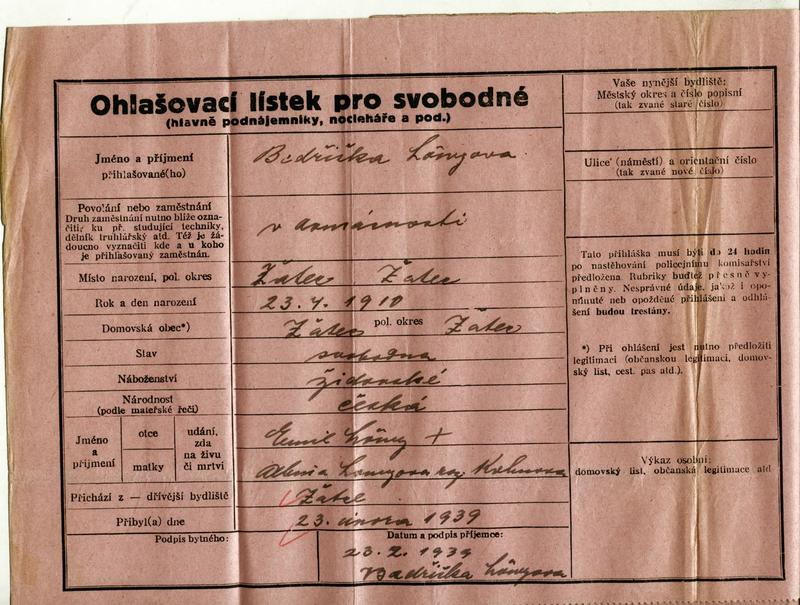 Ohlašovací lístek pro svobodné
(hlavně podnájemníky, nocleháře a pod.)
Jméno a příjmení
přihlašované(ho)
Bedřiška Löwyova
Povolání nebo zaměstnání
Druh zaměstnání nutno blíže ozna-
čiti, ku př. studující techniky,
dělník truhlářský atd. Též je žá-
doucno vyznačiti kde a u koho
je přihlašovaný zaměstnán.
v domácnosti
Místo narození, pol. okres
Žatec Žatec
Rok a den narození
23. 4. 1910
Domovská obec*)
Žatec pol. okres Žatec
Stav
svobodna
Náboženství
židovské
Národnost
(podle mateřské řeči)
česká
Jméno
a
příjmení
otce
matky
udání,
zda
na živu
či mrtvi
Emil Löwy +
Löwyova roz.
Přichází z — dřívější bydliště
Žatec
Přibyl(a) dne
23. února 1939
Podpis bytného:
Datum a podpis příjemce:
23. 2. 1939
Bedřiška Löwyova
Vaše nynější bydliště:
Městský okres a číslo popisní
(tak zvané staré číslo)
Ulice (náměstí) a orientační číslo
(tak zvané nové číslo)
Tato přihláška musí býti do 24 hodin
po nastěhování policejnímu komisařství
předložena. Rubriky buďtež přesně vy-
plněny. Nesprávné údaje, jakož i opo-
minuté neb opožděné přihlášení a odhlá-
šení budou trestány.
*) Při ohlášení jest nutno předložiti
legitimaci (občanskou legitimaci, domov-
ský list, cest. pas atd.).
Výkaz osobní:
domovský list, občanská legitimace atd